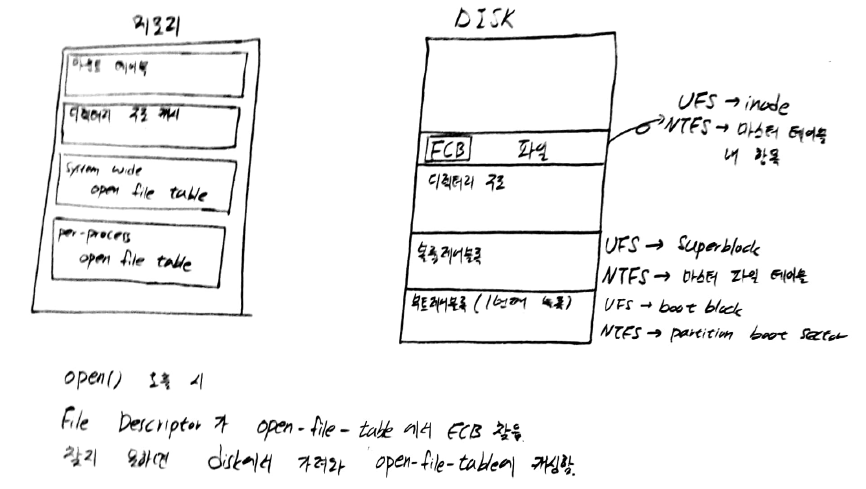 메모리
마운트 테이블
디렉터리 구조 캐시
System wide
open file table
per-process
open file table
DISK
FCB 파일
디렉터리 구조
볼륨제어블록
부트제어블록 (1번째 블록)
UFS → inode
NTFS → 마스터 테이블
내 항목
UFS → Superblock
NTFS → 마스터 파일 테이블
UFS → boot block
NTFS → partition boot sector
open() 호출 시
File Descriptor가 open-file-table에서 FCB 찾음.
찾지 못하면 disk에서 가져와 open-file-table에 캐싱함.